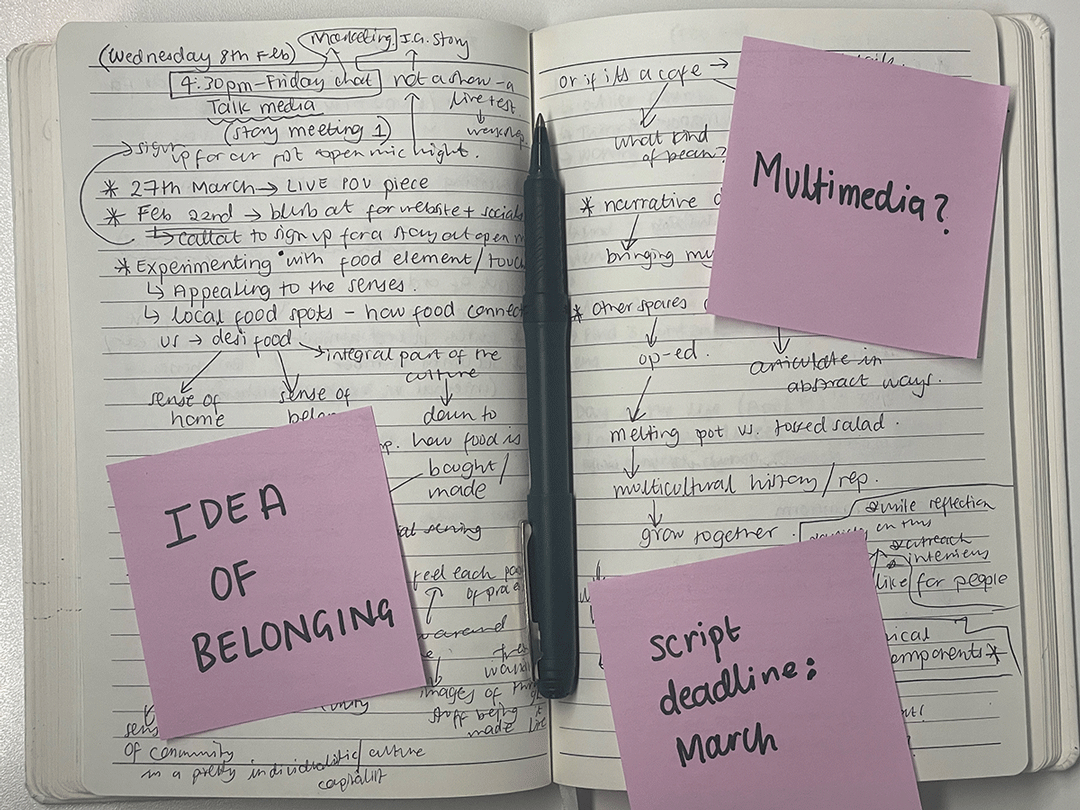 (Wednesday 8th Feb)
Marketing I.G. Story
4:30pm-Friday chat
not a show - a
Talk media
live test.
(story meeting 1)
workshop.
sign
up for our first open mic night.
* 27th March → LIVE POV piece
* Feb 22nd → blurb out for website + socials
↳ callout to sign up for a story out open m
* Experimenting with food element/touch
↳ Appealing to the senses.
↳ local food spots - how food connect
us → desi food → integral part of the
culture
sense of
home
sense of
down to
how food is
bought/
made
IDEA
OF
BELONGING
feel each
images of
stuff being
made
of community
in a pretty individualistic/culture
capitalist
or if its a cafe →
what kind
of bean?
* narrative
bringing my
* other spares
op-ed.
articulate in
abstract ways.
melting pot vs. tossed salad.
multicultural history/rep.
grow together.
reflection
on this
outreach
interviews
like for people
omponents *
Multimedia?
script
deadline:
March